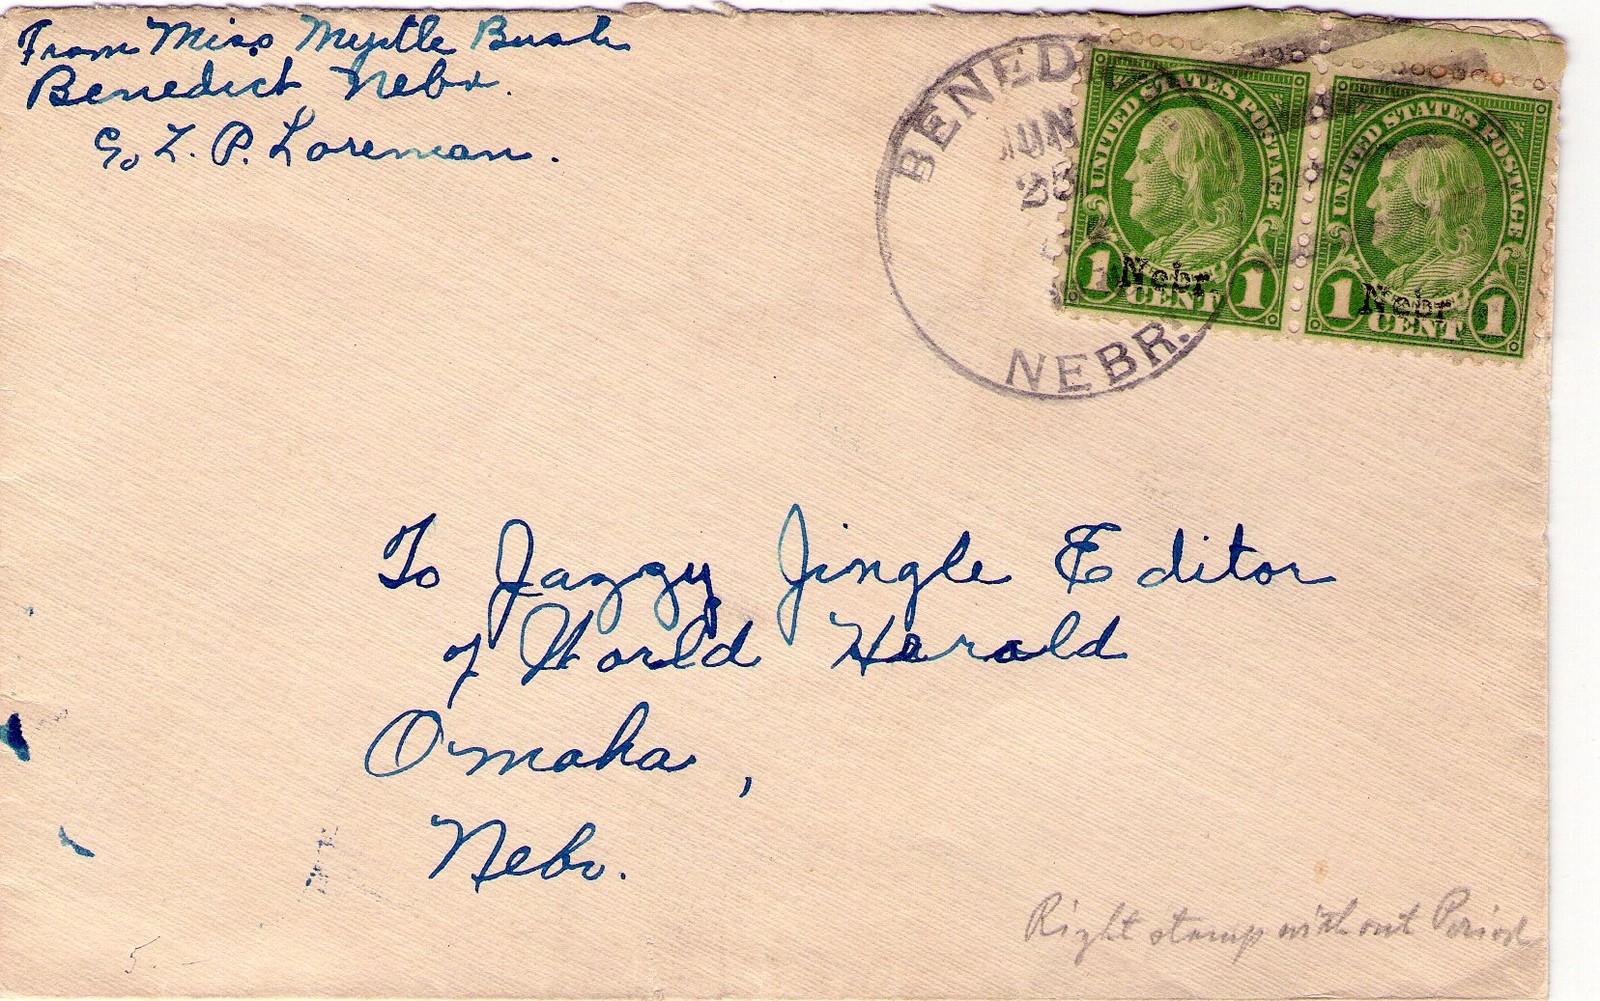 From Miss Myrtle Bush
Benedict Nebr.
c/o L. P. Loreman.
BENED
JUN
25
NEBR.
UNITED STATES POSTAGE
1 CENT 1
Nebr.
UNITED STATES POSTAGE
1 CENT 1
Nebr
To Jazzy Jingle Editor
of World Herald
Omaha,
Nebr.
Right stamp without Period
5